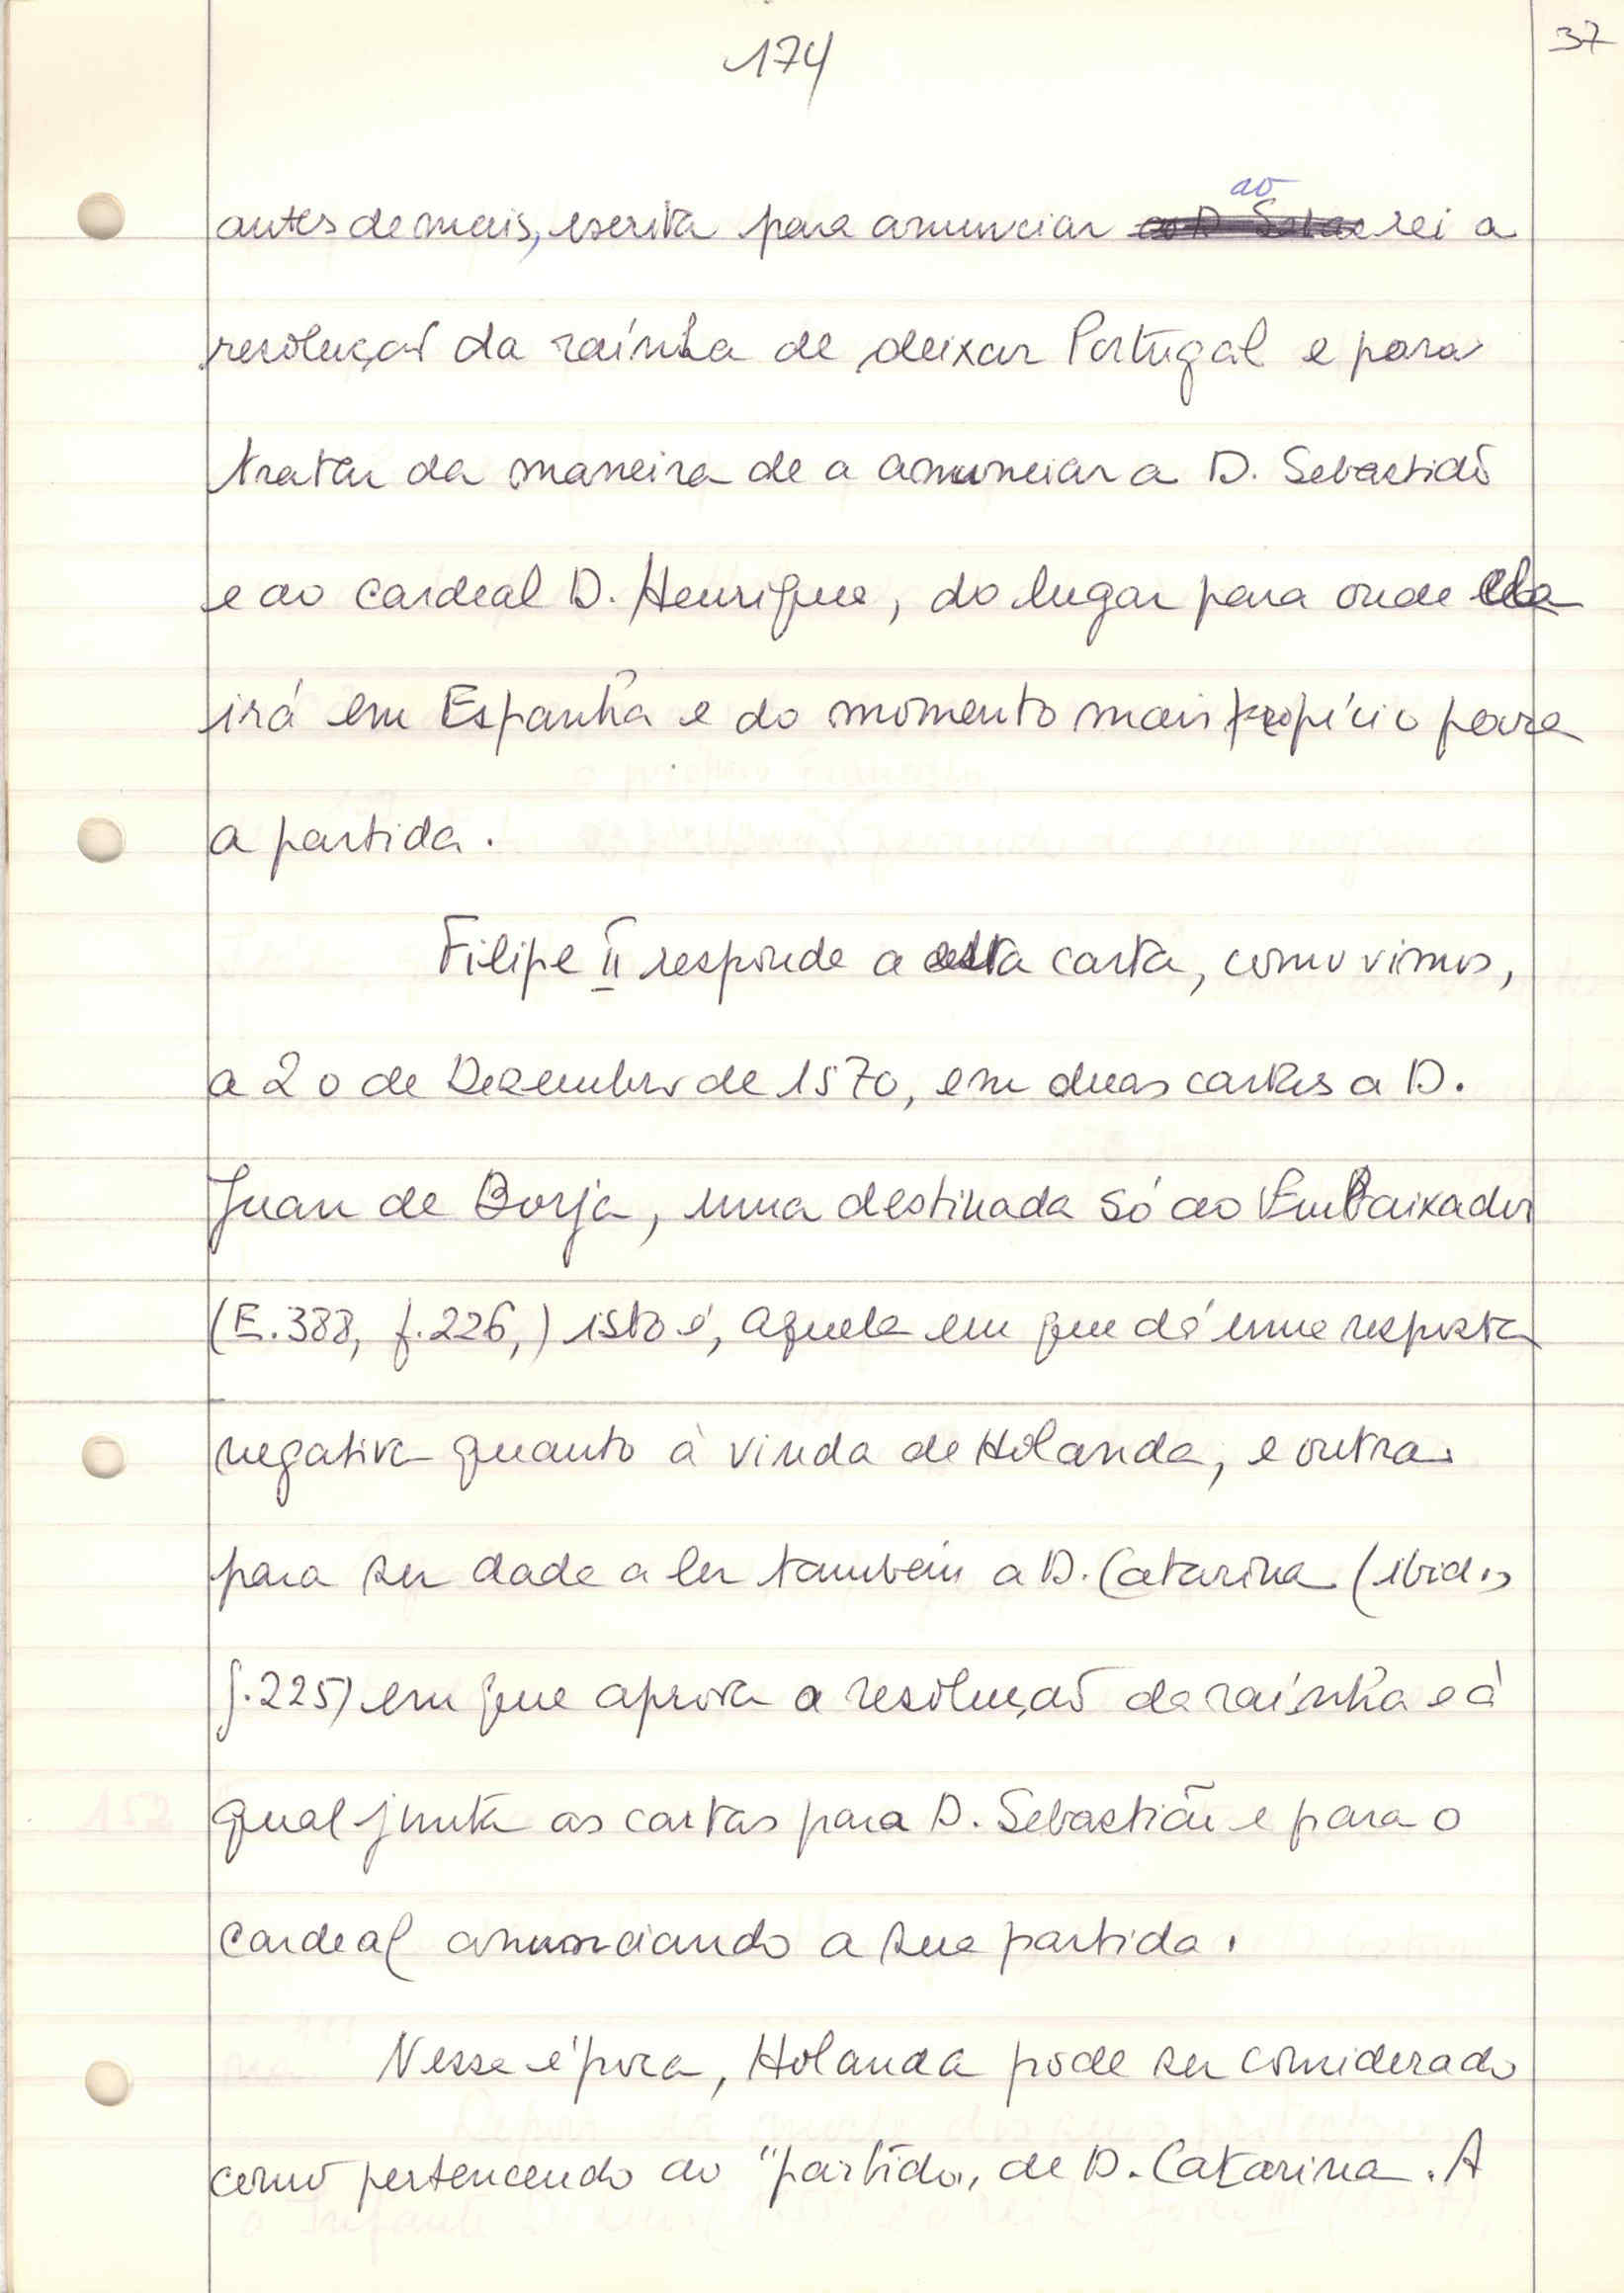 174
37
ao
antes de mais, escrita para anunciar ao D Sebas rei a
resolução da raínha de deixar Portugal e para
tratar da maneira de a anunciar a D. Sebastião
e ao Cardeal D. Henrique, do lugar para onde ela
irá em Espanha e do momento mais propício para
a partida.
Filipe II responde a esta carta, como vimos,
a 20 de Dezembro de 1570, em duas cartas a D.
Juan de Borja, uma destinada só ao Embaixador
(E.388, f.226,) isto é, aquela em que dá uma resposta
negativa quanto à vinda de Holanda, e outra
para ser dada a ler também a D. Catarina (ibid.,
f.225) em que aprova a resolução da raínha e à
qual junta as cartas para D. Sebastião e para o
Cardeal anunciando a sua partida.
Nessa época, Holanda pode ser considerado
como pertencendo ao "partido" de D. Catarina. A
152